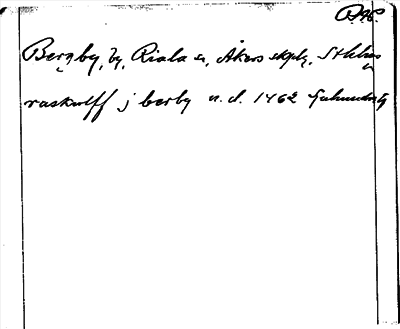 Bergby, by, Riala sn, Åkers skplg, Sthlms
raskulff j berby u.d. 1462